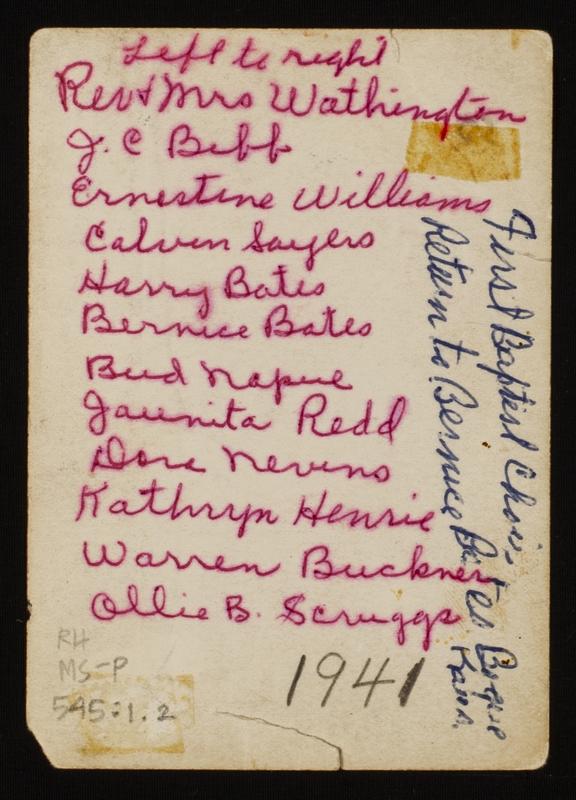 Left to right
Rev & Mrs Wathington
J. C Bibb
Ernestine Williams
Calvin Sayers
Harry Bates
Bernice Bates
Bud Napue
Jaunita Redd
Dora Nevins
Kathryn Henrie
Warren Buckner
Ollie B. Scruggs
1941
RH
MS-P
545:1.2
First Baptist Choir
Return to Bernice Bates Bogue
Kans.